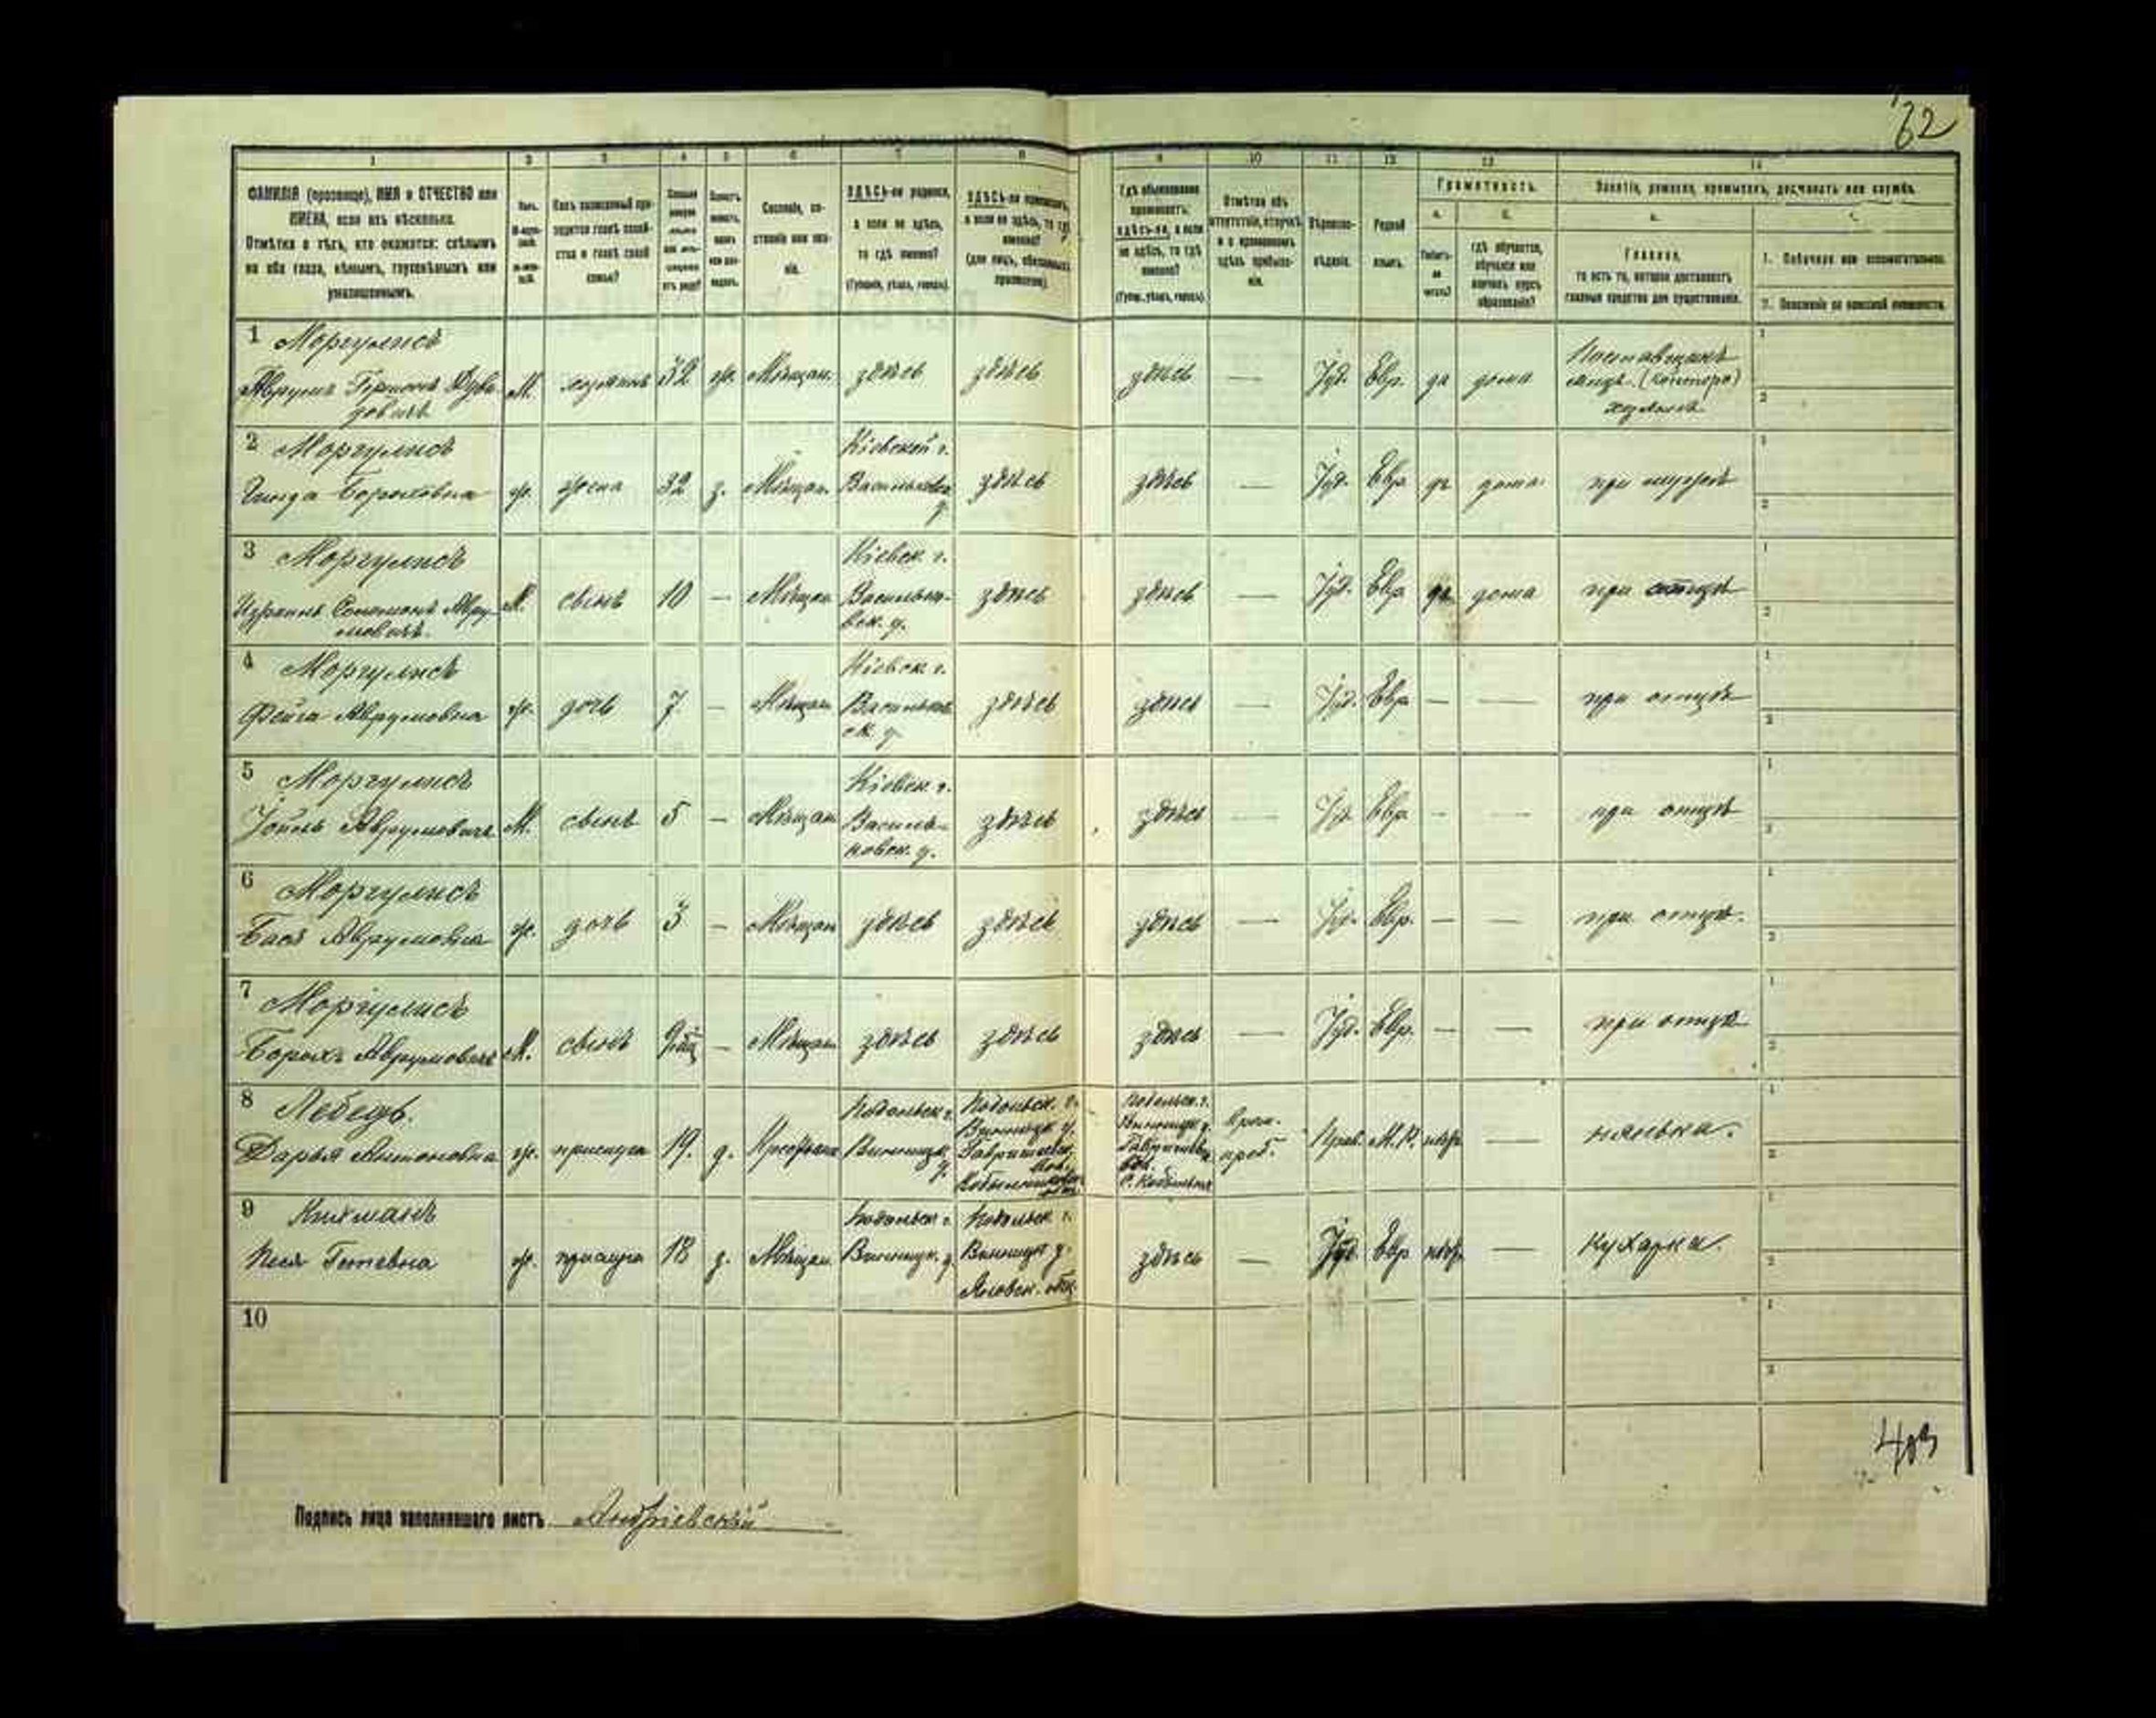 62
1 2 3 4 5 6 7 8 9 10 11 12 13 14
ФАМИЛІЯ (прозвище), ИМЯ и ОТЧЕСТВО или
ИМЕНА, если ихъ нѣсколько.
Отмѣтка о тѣхъ, кто окажется: слѣпымъ
на оба глаза, нѣмымъ, глухонѣмымъ или
умалишеннымъ.
Сословіе, со-
стояніе или зва-
ніе.
ЗДѢСЬ-ли родился,
а если не здѣсь,
то гдѣ именно?
(Губернія, уѣздъ, городъ).
ЗДѢСЬ-ли приписанъ,
а если не здѣсь, то гдѣ
именно?
(для лицъ, обязанныхъ
припискою).
Гдѣ обыкновенно
проживаетъ:
здѣсь-ли, а если
не здѣсь, то гдѣ
именно?
(Губер., уѣздъ, городъ).
Отмѣтка объ
отсутствіи, отлучкѣ
и о временномъ
здѣсь пребыва-
ніи.
Вѣроиспо-
вѣданіе.
Родной
языкъ.
Грамотность.
а. б.
Умѣетъ-
ли
читать?
гдѣ обучается,
обучался или
кончилъ курсъ
образованія?
Занятіе, ремесло, промыселъ, должность или служба.
Главное,
то есть то, которое доставляетъ
главныя средства для существованія.
1. Побочное или вспомогательное.
2. Положеніе по воинской повинности.
1 Моргулисъ
Аврумъ Гершонъ Дуви-
довичъ М. хозяинъ 32 ж. Мѣщан. здѣсь здѣсь здѣсь — Іуд. Евр. да дома Поставщикъ
(контора)
хозяинъ
2 Моргулисъ
Боруховна ж. жена 32 з. Мѣщан. Кіевской г.
Васильковск.
у. здѣсь здѣсь — Іуд. Евр. да дома при мужѣ
3 Моргулисъ
Израиль Соломонъ Авру-
мовичъ. М. сынъ 10 — Мѣщан Кіевск. г.
Василько-
вск. у. здѣсь здѣсь — Іуд. Евр да дома при отцѣ
4 Моргулисъ
Фейга Аврумовна ж. дочь 7 — Мѣщан Кіевск. г.
Васильков
ск. у. здѣсь здѣсь — Іуд. Евр. — — при отцѣ
5 Моргулисъ
Іойль Аврумовичъ М. сынъ 5 — Мѣщан Кіевск. г.
Василь-
ковск. у. здѣсь здѣсь Іуд. Евр. - — при отцѣ
6 Моргулисъ
Бася Аврумовна ж. дочь 3 — Мѣщан здѣсь здѣсь здѣсь — Іуд. Евр. — — при отцѣ.
7 Моргулисъ
Борохъ Аврумовичъ М. сынъ — Мѣщан здѣсь здѣсь здѣсь — Іуд. Евр. — — при отцѣ
8 Лебедь.
Дарья Антоновна ж. прислуга 19. д. Крестьян Подольск г.
Винницк.
у. Подольск. г.
Винницк у.
Подольск. г.
Винницк у.
врем.
преб. Прав. М.Р. негр. — нянька.
9 Кихманъ
Песя ж. прислуга 18 д. Мѣщан. Подольск г.
Винницк. у Подольск г.
Винницк у.
Яновск. общ. здѣсь — Іуд Евр негр. — кухарка.
10
Подпись лица заполнившаго листъ Андріевскій